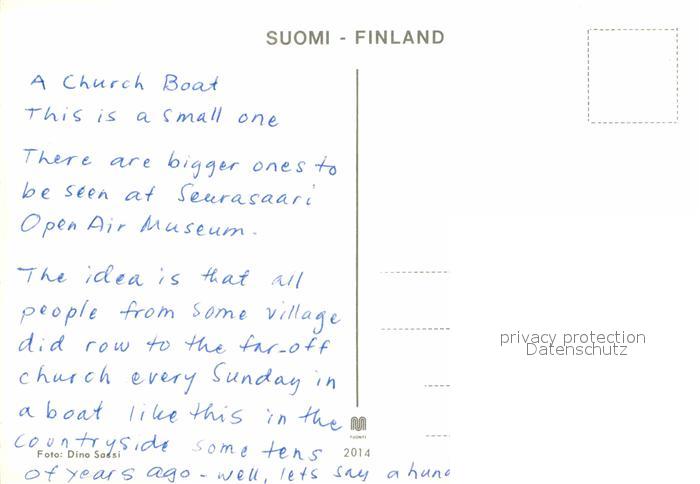 SUOMI - FINLAND
A Church Boat
This is a small one
There are bigger ones to
be seen at Seurasaari
Open Air Museum.
The idea is that all
people from some village
did row to the far-off
church every Sunday in
a boat like this in the
countryside some tens
of years ago - well, lets say a hund
privacy protection
Datenschutz
Foto: Dino Sassi
2014